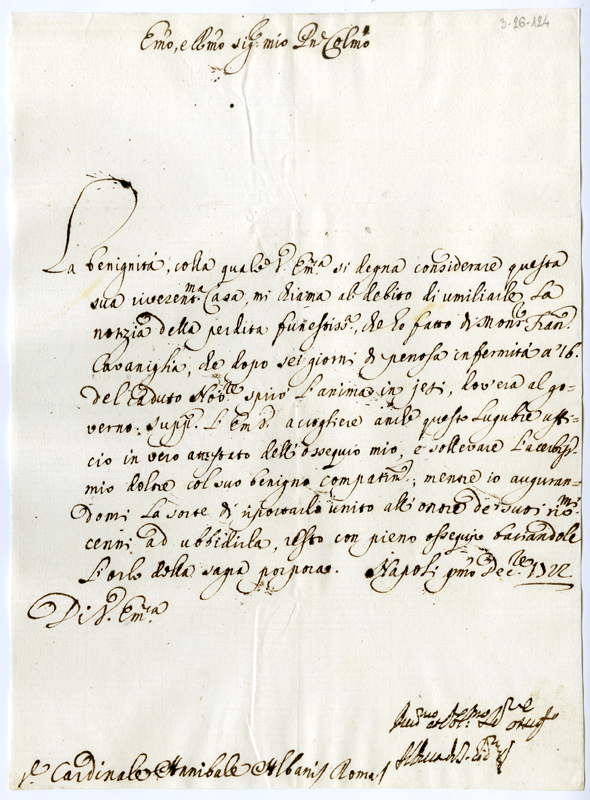 3-26-124
Emo, e Rmo Sigr. mio Pne Colmo
La benignità, colla quale V. Emza. si degna considerare questa
sua riverentma Casa, mi chiama al debito di umiliarle la
notizia della perdita funestissa., che ho fatto di Monsr. Franco.
Cavaniglia, che dopo sei giorni di penosa infermità a' 16.
del caduto Nobre spirò l'anima in Jesi, dov'era al go-
verno. Suppco. l'Em. V. accogliere anche questo lugubre uffi-
cio in vero attestato dell'ossequio mio, e sollevare l'acerbissmo.
mio dolore col suo benigno compatimto.; mentre io auguran-
domi la sorte di riportarlo unito all'onore de' suoi rivmi.
cenni ad ubbidirla, resto con pieno ossequio baciandole
l'orlo della sagra porpora. Napoli pmo Decre. 1722
Di V. Emza.
Sr. Cardinale Annibale Albani Roma